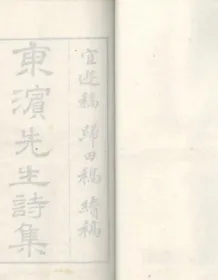 宦遊稿 歸田稿 續稿
東濱先生詩集